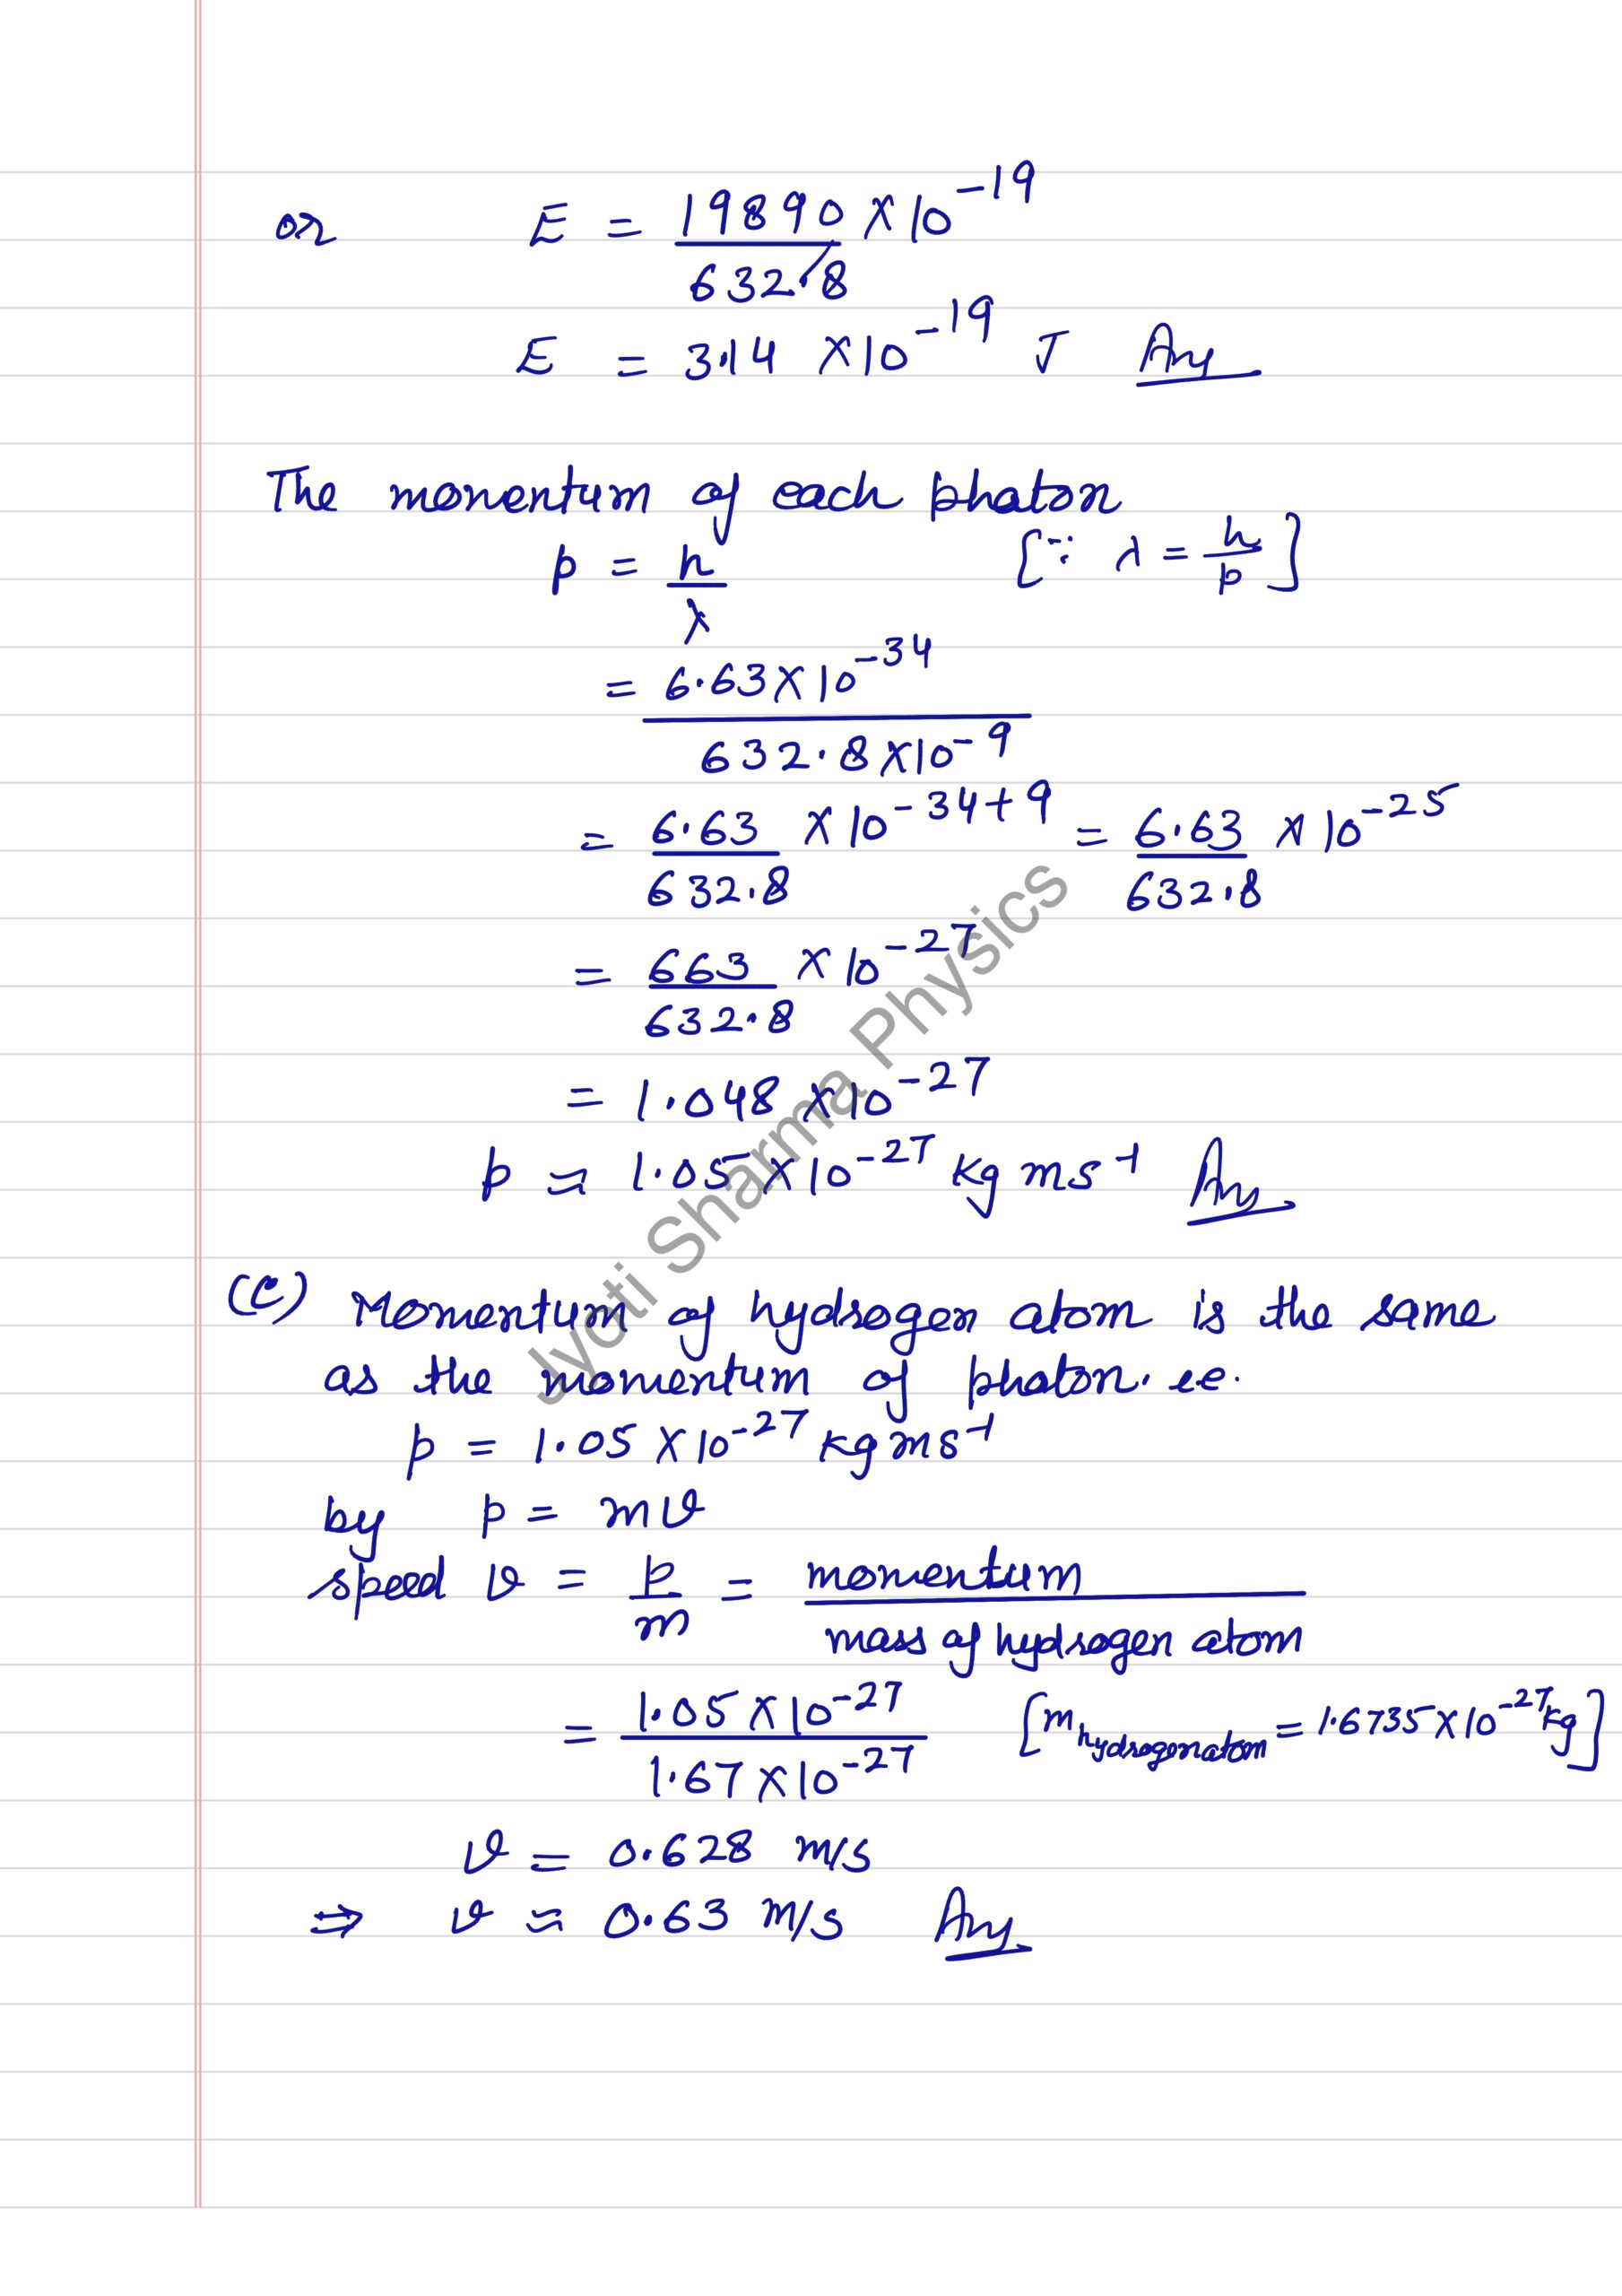 or E = 19890/632.8 × 10⁻¹⁹
E = 3.14 × 10⁻¹⁹ J Ans
The momentum of each photon
p = h/λ [∵ λ = h/p]
= 6.63×10⁻³⁴/632.8×10⁻⁹
= 6.63/632.8 × 10⁻³⁴⁺⁹ = 6.63/632.8 × 10⁻²⁵
= 663/632.8 × 10⁻²⁷
= 1.048 × 10⁻²⁷
p ≈ 1.05 × 10⁻²⁷ Kg ms⁻¹ Ans
(c) Momentum of hydrogen atom is the same
as the momentum of photon. i.e.
p = 1.05 × 10⁻²⁷ kg ms⁻¹
by p = mv
speed v = p/m = momentum/mass of hydrogen atom
= 1.05×10⁻²⁷/1.67×10⁻²⁷ [m hydrogen atom = 1.6735×10⁻²⁷ kg]
v = 0.628 m/s
⇒ v ≈ 0.63 m/s Ans
Jyoti Sharma Physics